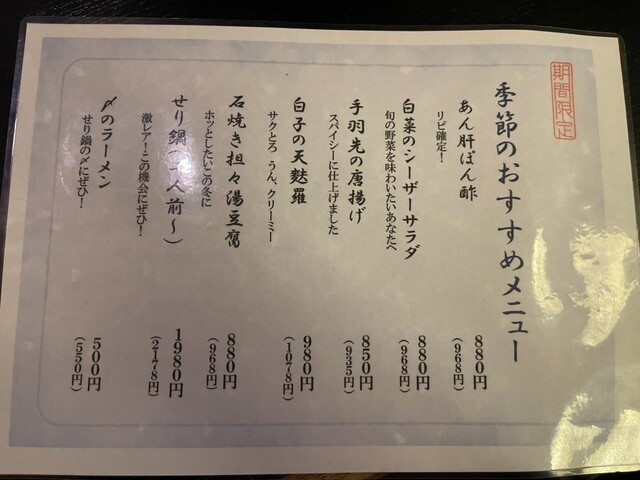 期間限定
季節のおすすめメニュー
あん肝ぽん酢
リピ確定！
880円
（968円）
白菜のシーザーサラダ
旬の野菜を味わいたいあなたへ
880円
（968円）
手羽先の唐揚げ
スパイシーに仕上げました
850円
（935円）
白子の天麩羅
サクとろ うん、クリーミー
980円
（1078円）
石焼き担々湯豆腐
ホッとしたいこの冬に
880円
（968円）
せり鍋（一人前～）
激レア！この機会にぜひ！
1980円
（2178円）
〆のラーメン
せり鍋の〆にぜひ！
500円
（550円）